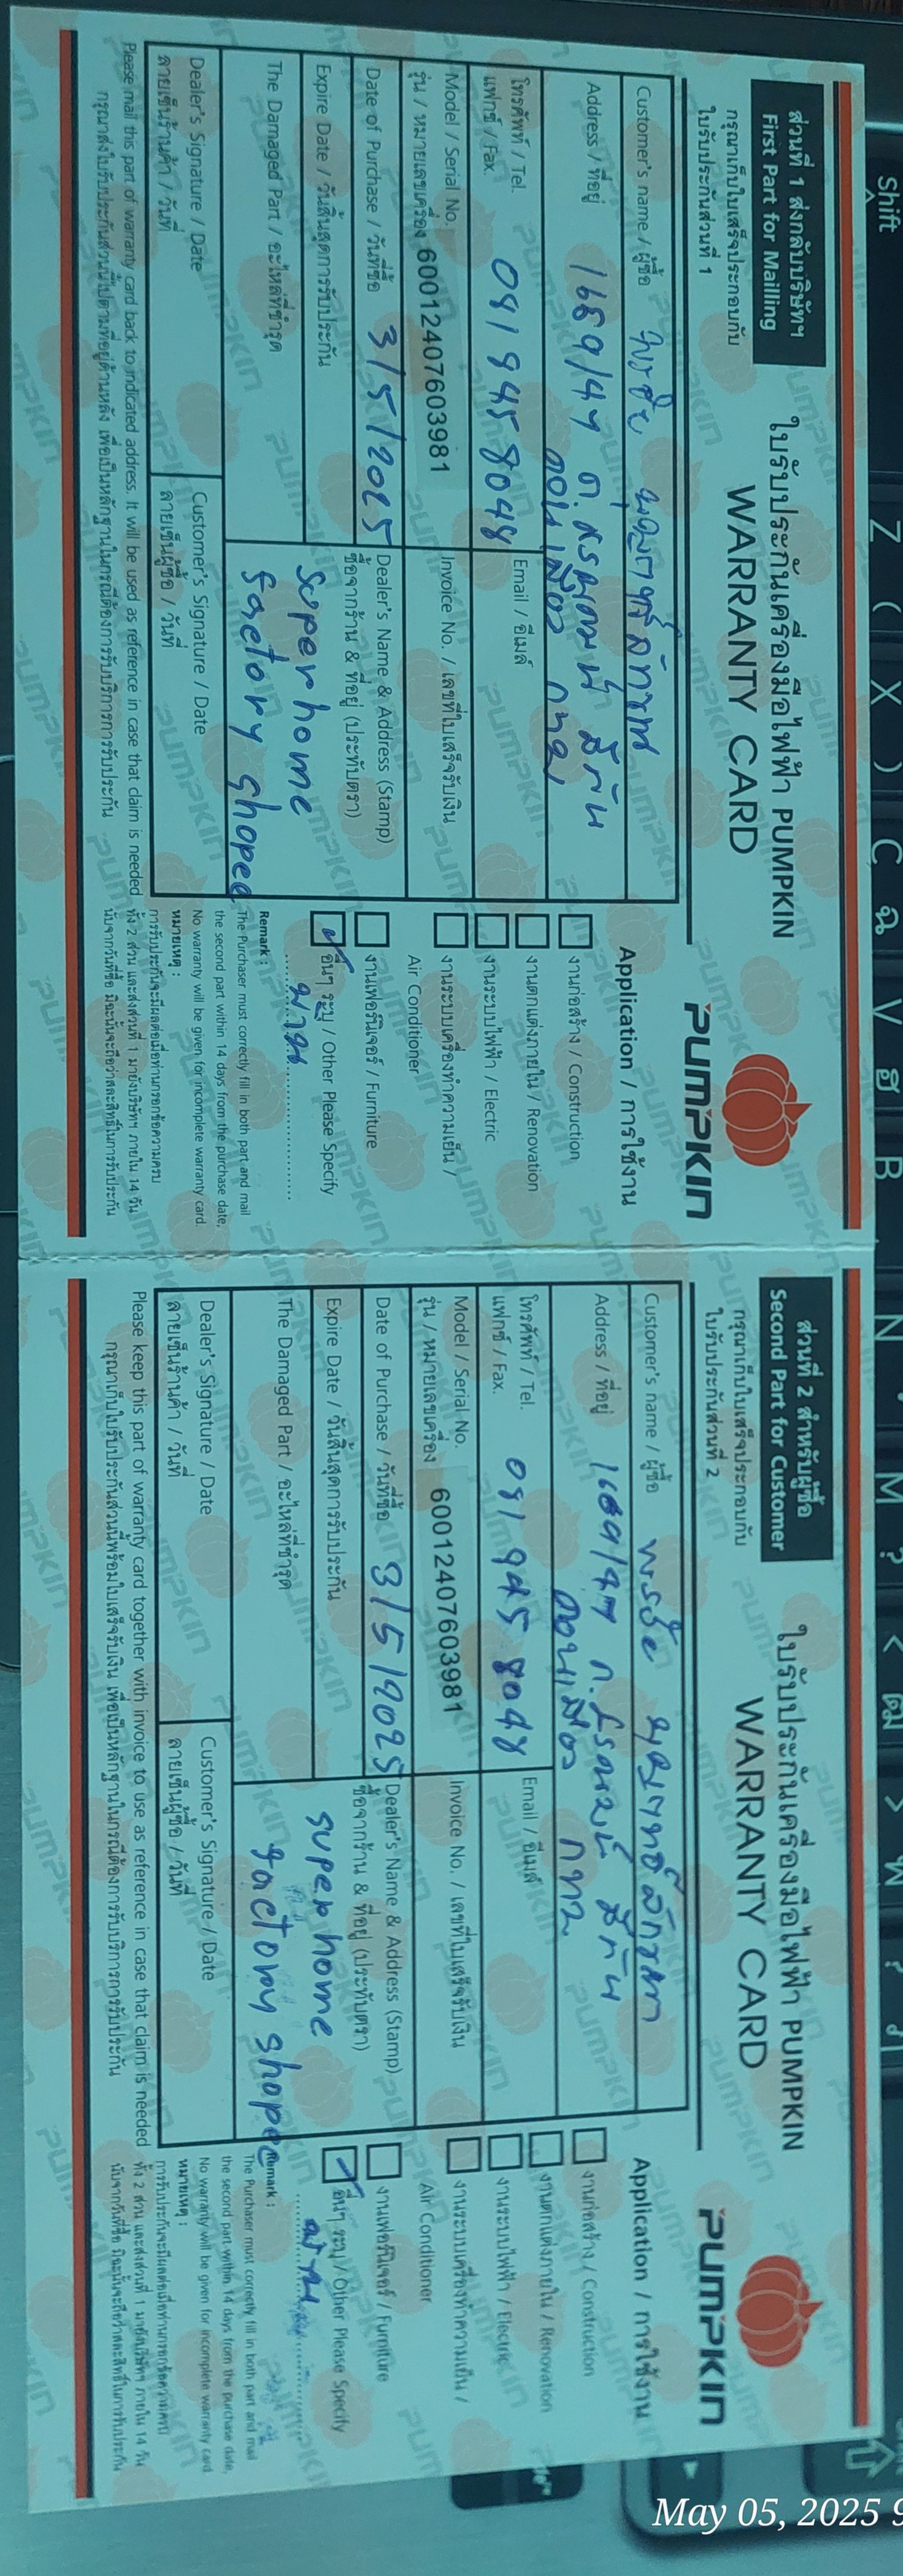 Shift Z ( X ) C ฉ V ฮ B N M ? < ฒ >
ส่วนที่ 1 ส่งกลับบริษัทฯ
First Part for Mailling
กรุณาเก็บใบเสร็จประกอบกับ
ใบรับประกันส่วนที่ 1
ใบรับประกันเครื่องมือไฟฟ้า PUMPKIN
WARRANTY CARD
PUMPKIN
Customer's name / ผู้ซื้อ
Address / ที่อยู่ 1669/47
ดอนเมือง กทม
โทรศัพท์ / Tel.
แฟกซ์ / Fax. 081 945 8048
Email / อีเมล์
Model / Serial No.
รุ่น / หมายเลขเครื่อง 600124076039​81
Invoice No. / เลขที่ใบเสร็จรับเงิน
Date of Purchase / วันที่ซื้อ 3/5/2025
Expire Date / วันสิ้นสุดการรับประกัน
Dealer's Name & Address (Stamp)
ซื้อจากร้าน & ที่อยู่ (ประทับตรา)
Super home
factory shopee
The Damaged Part / อะไหล่ที่ชำรุด
Dealer's Signature / Date
ลายเซ็นร้านค้า / วันที่
Customer's Signature / Date
ลายเซ็นผู้ซื้อ / วันที่
Please mail this part of warranty card back to indicated address. It will be used as reference in case that claim is needed
กรุณาส่งใบรับประกันส่วนนี้ไปตามที่อยู่ด้านหลัง เพื่อเป็นหลักฐานในกรณีต้องการรับบริการการรับประกัน
Application / การใช้งาน
งานก่อสร้าง / Construction
งานตกแต่งภายใน / Renovation
งานระบบไฟฟ้า / Electric
งานระบบเครื่องทำความเย็น /
Air Conditioner
งานเฟอร์นิเจอร์ / Furniture
อื่นๆ ระบุ / Other Please Specify
Remark :
The Purchaser must correctly fill in both part and mail
the second part within 14 days from the purchase date,
No warranty will be given for incomplete warranty card.
หมายเหตุ :
การรับประกันจะมีผลต่อเมื่อท่านกรอกข้อความครบ
ทั้ง 2 ส่วน และส่งส่วนที่ 1 มายังบริษัทฯ ภายใน 14 วัน
นับจากวันที่ซื้อ มิฉะนั้นจะถือว่าสละสิทธิ์ในการรับประกัน
ส่วนที่ 2 สำหรับผู้ซื้อ
Second Part for Customer
กรุณาเก็บใบเสร็จประกอบกับ
ใบรับประกันส่วนที่ 2
ใบรับประกันเครื่องมือไฟฟ้า PUMPKIN
WARRANTY CARD
PUMPKIN
Customer's name / ผู้ซื้อ พรชัย
Address / ที่อยู่ 1669/47
ดอนเมือง กทม
โทรศัพท์ / Tel.
แฟกซ์ / Fax. 081 945 8048
Email / อีเมล์
Model / Serial No.
รุ่น / หมายเลขเครื่อง 60012407603981
Invoice No. / เลขที่ใบเสร็จรับเงิน
Date of Purchase / วันที่ซื้อ 3/5/2025
Expire Date / วันสิ้นสุดการรับประกัน
Dealer's Name & Address (Stamp)
ซื้อจากร้าน & ที่อยู่ (ประทับตรา)
super home
factory shopee
The Damaged Part / อะไหล่ที่ชำรุด
Dealer's Signature / Date
ลายเซ็นร้านค้า / วันที่
Customer's Signature / Date
ลายเซ็นผู้ซื้อ / วันที่
Please keep this part of warranty card together with invoice to use as reference in case that claim is needed
กรุณาเก็บใบรับประกันส่วนนี้พร้อมใบเสร็จรับเงิน เพื่อเป็นหลักฐานในกรณีต้องการรับบริการการรับประกัน
Application / การใช้งาน
งานก่อสร้าง / Construction
งานตกแต่งภายใน / Renovation
งานระบบไฟฟ้า / Electric
งานระบบเครื่องทำความเย็น /
Air Conditioner
งานเฟอร์นิเจอร์ / Furniture
อื่นๆ ระบุ / Other Please Specify
Remark :
The Purchaser must correctly fill in both part and mail
the second part within 14 days from the purchase date,
No warranty will be given for incomplete warranty card.
หมายเหตุ :
การรับประกันจะมีผลต่อเมื่อท่านกรอกข้อความครบ
ทั้ง 2 ส่วน และส่งส่วนที่ 1 มายังบริษัทฯ ภายใน 14 วัน
นับจากวันที่ซื้อ มิฉะนั้นจะถือว่าสละสิทธิ์ในการรับประกัน
May 05, 2025 9